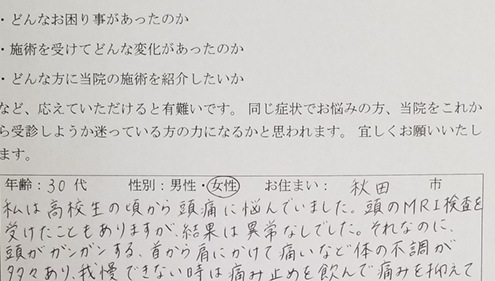 ・どんなお困り事があったのか
・施術を受けてどんな変化があったのか
・どんな方に当院の施術を紹介したいか
など、応えていただけると有難いです。 同じ症状でお悩みの方、当院をこれか
ら受診しようか迷っている方の力になるかと思われます。 宜しくお願いいたし
ます。
年齢：30 代 性別：男性・女性 お住まい： 秋田 市
私は高校生の頃から頭痛に悩んでいました。頭のMRI検査を
受けたこともありますが、結果は異常なしでした。それなのに、
頭がガンガンする、首から肩にかけて痛いなど体の不調が
多々あり、我慢できない時は痛み止めを飲んで痛みを抑えて